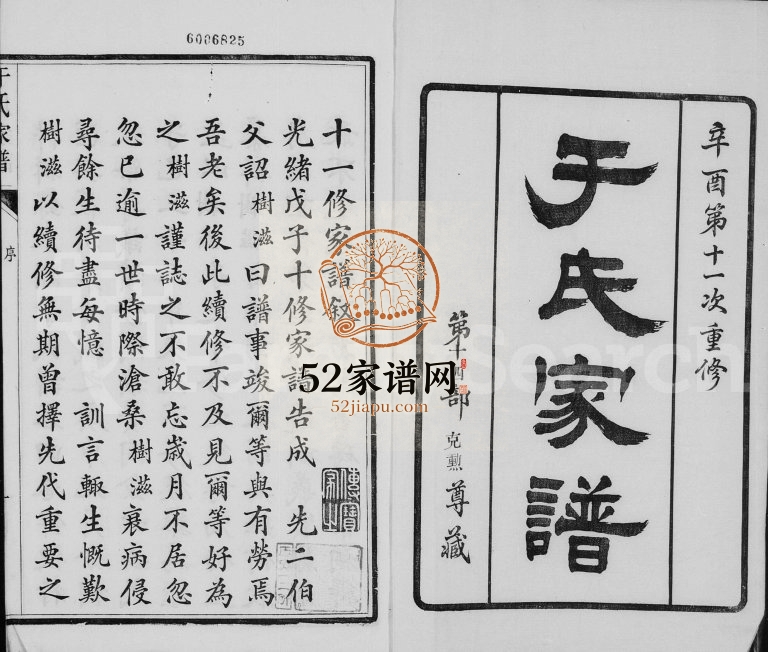 6006825
辛酉第十一次重修
于氏家譜
第十四部 克勲 尊藏
52家谱网
52jiapu.com
十一修家譜敘
光緒戊子十修家譜告成 先二伯
父詔樹滋曰譜事竣爾等與有勞焉
吾老矣後此續修不及見爾等好為
之樹滋謹誌之不敢忘歲月不居忽
忽已逾一世時際滄桑樹滋衰病侵
尋餘生待盡每憶 訓言輒生慨歎
樹滋以續修無期曾擇先代重要之
于氏家譜
序
一